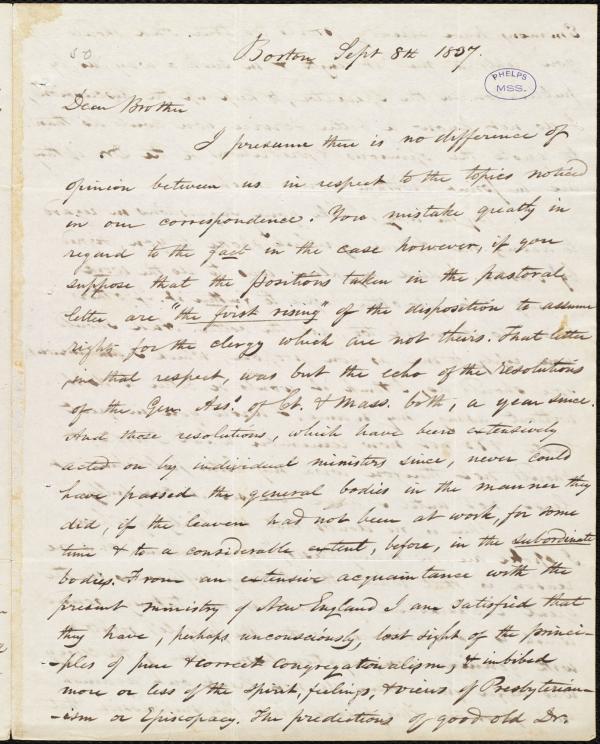 Boston Sept 8th 1837.
PHELPS
MSS.
Dear Brother
I presume there is no difference of
opinion between us in respect to the topics noticed
in our correspondence. You mistake greatly in
regard to the fact in the case however, if you
suppose that the positions taken in the pastoral
letter are "the first rising" of the disposition to assume
rights for the clergy which are not theirs. That letter
in that respect, was but the echo of the resolutions
of the Gen. Ass. of Ct. & Mass. both, a year since.
And those resolutions, which have been extensively
acted on by individual ministers since, never could
have passed the general bodies in the manner they
did, if the leaven had not been at work, for some
time & to a considerable extent, before, in the subordinate
bodies. From an extensive acquaintance with the
present ministry of New England I am satisfied that
they have, perhaps unconsciously, lost sight of the princi-
-ples of pure & correct congregationalism, & imbibed
more or less of the spirit, feelings, & views of Presbyterian-
-ism or Episcopacy. The predictions of good old Dr.